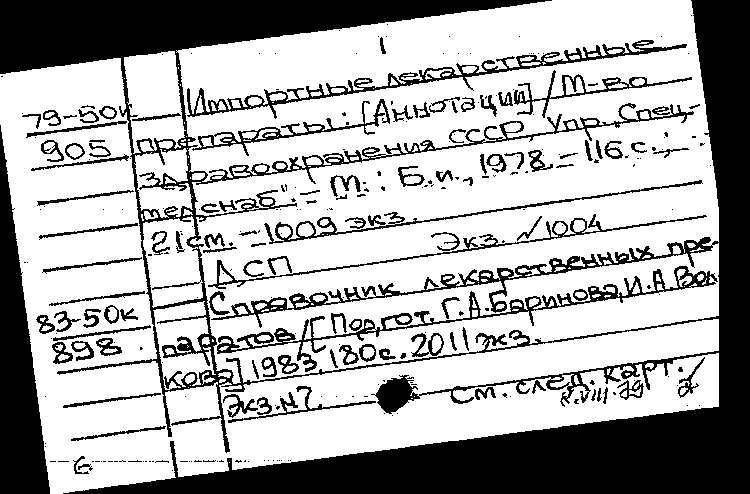 1
Импортные лекарственные
79-50к препараты: [Аннотации] / М-во
905 здравоохранения СССР, Упр. "Спец-
медснаб". - М.: Б.и., 1978. - 116 с.;
21 см. - 1009 экз.
Экз. √1004
ДСП
Справочник лекарственных пре-
83-50к паратов / [Подгот. Г.А. Баринова, И.А. Вол-
898. кова]. 1983. 180 с. 2011 экз.
Экз. №7.
См. след. карт. /
VIII.79 2
6